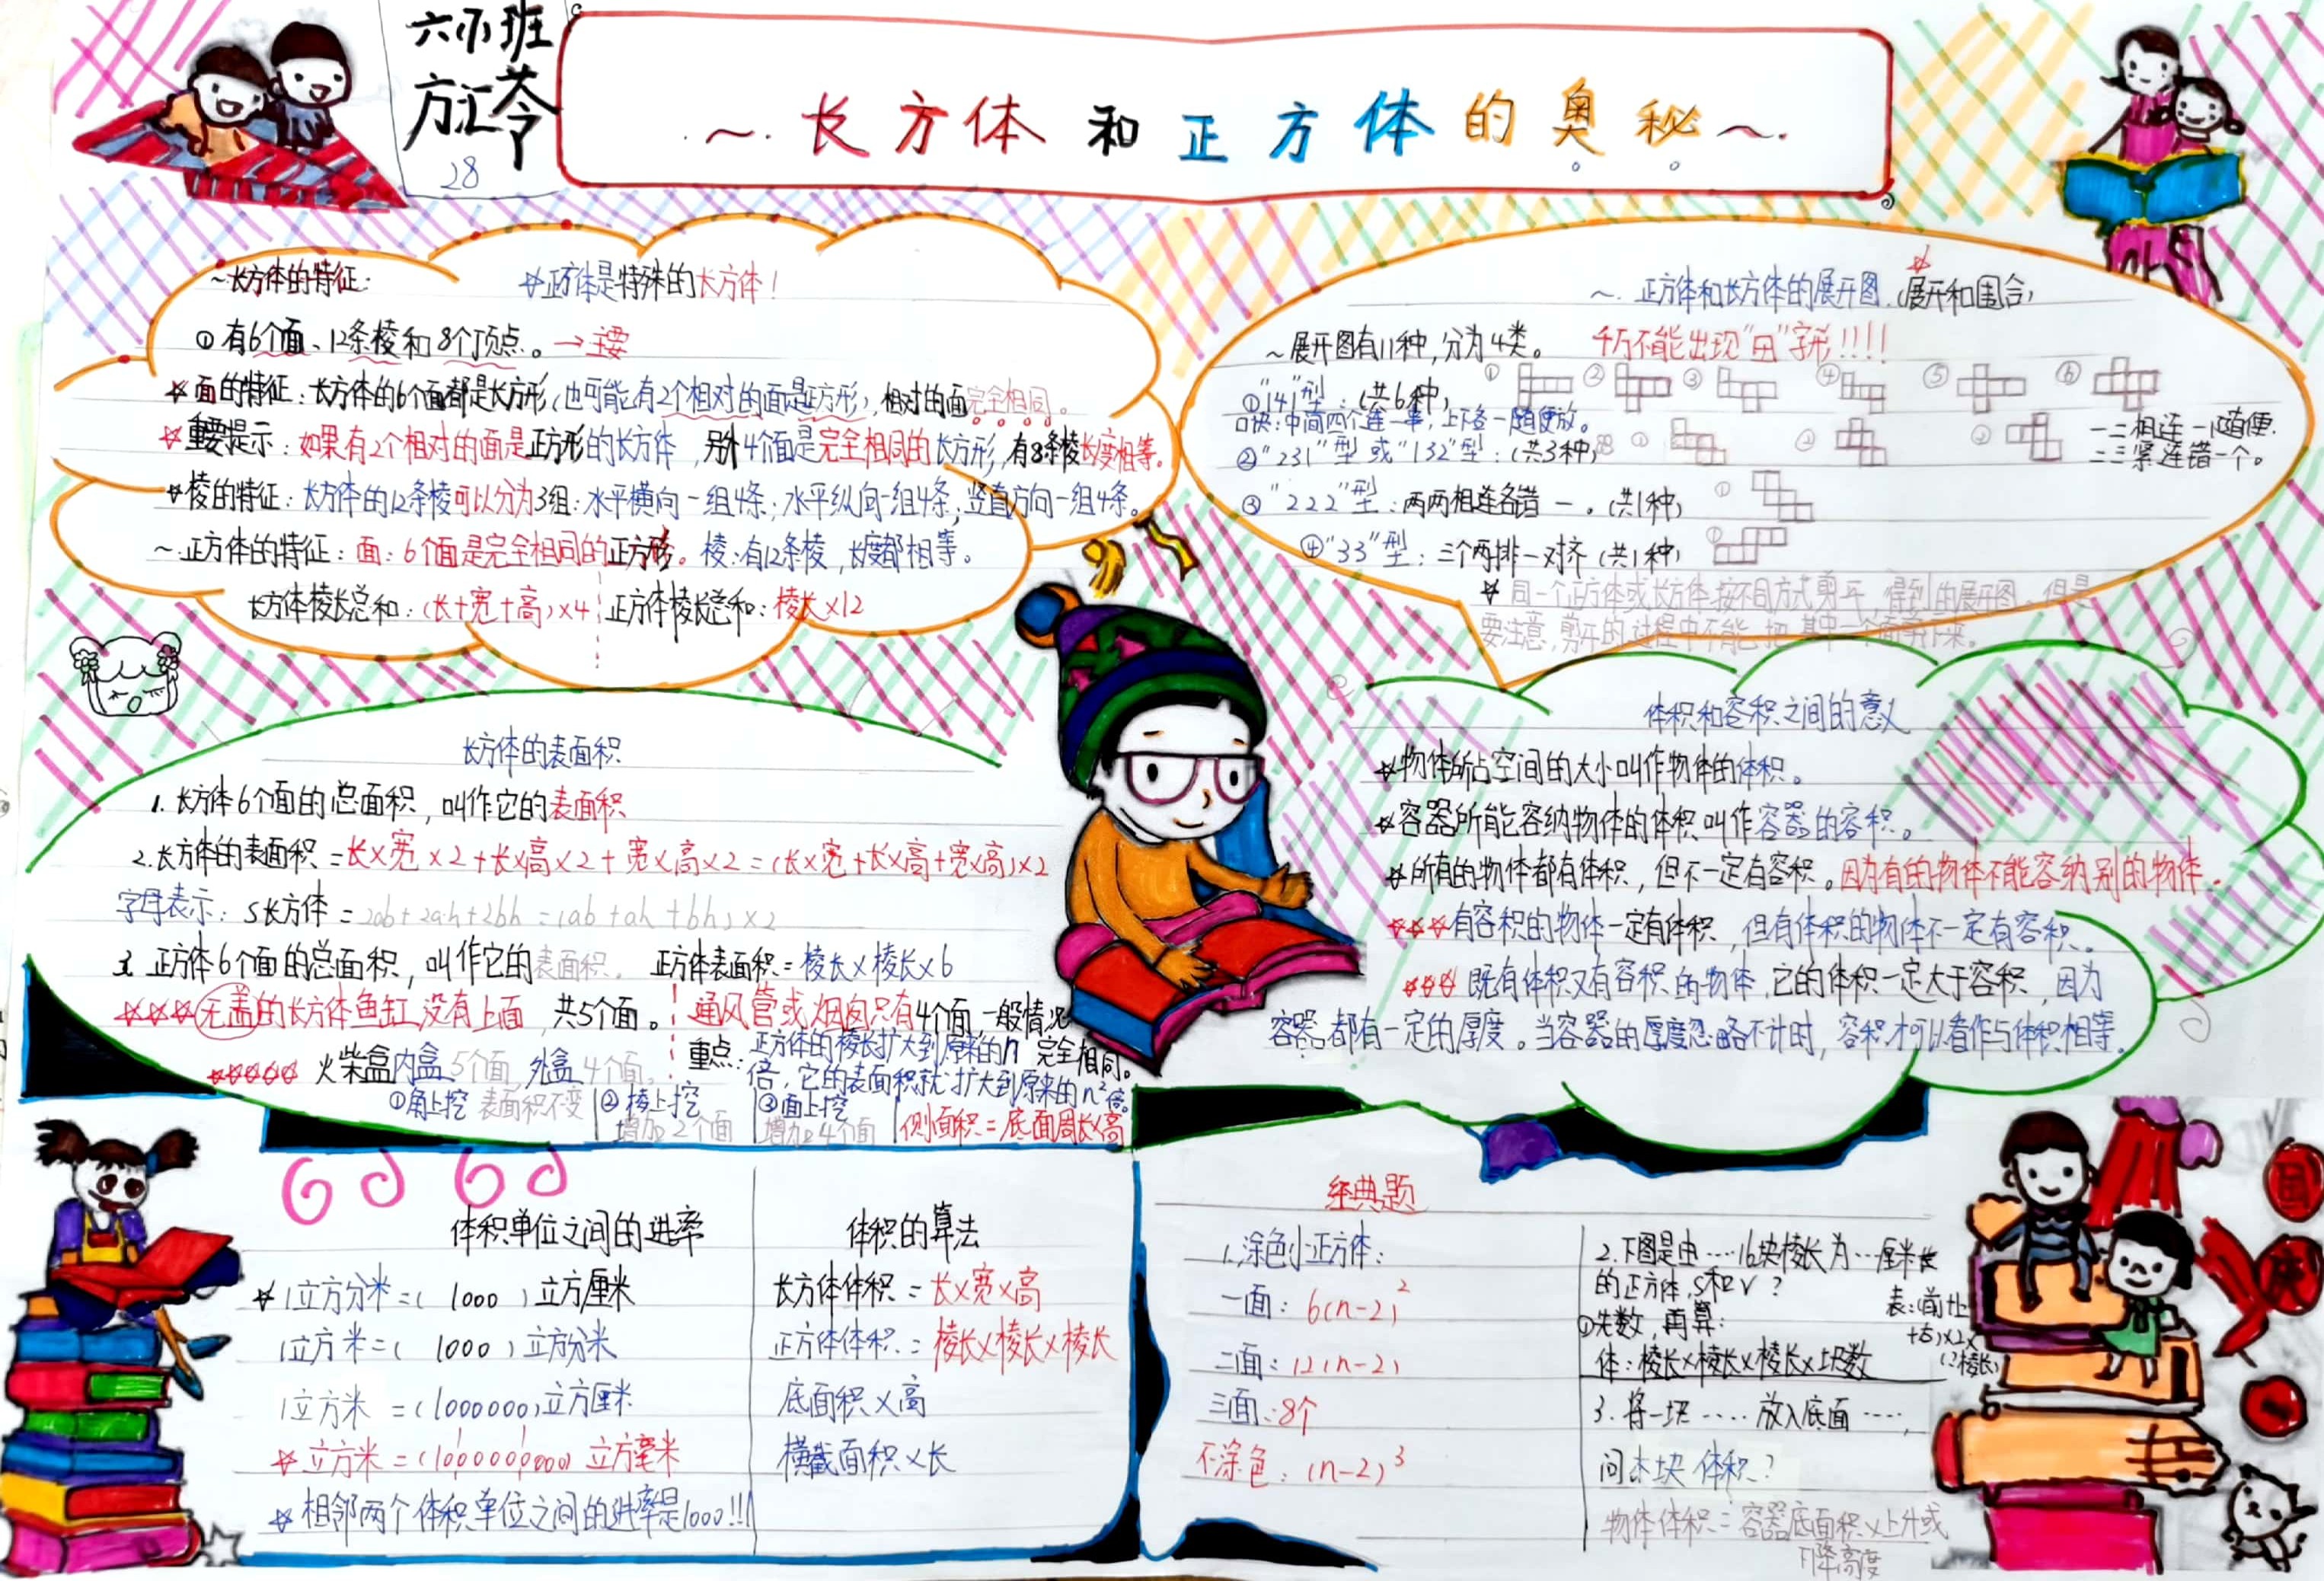 六(7)班
方汇苓
28
~.长方体和正方体的奥秘~.
~长方体的特征:
☆正方体是特殊的长方体!
①有6个面、12条棱和8个顶点。→主要
☆面的特征:长方体的6个面都是长方形(也可能有2个相对的面是正方形),相对的面完全相同。
☆重要提示:如果有2个相对的面是正方形的长方体,另外4个面是完全相同的长方形,有8条棱长度相等。
☆棱的特征:长方体的12条棱可以分为3组:水平横向一组4条;水平纵向一组4条;竖直方向一组4条。
~.正方体的特征:面:6个面是完全相同的正方形。棱:有12条棱,长度都相等。
长方体棱长总和:(长+宽+高)×4 正方体棱长总和:棱长×12
~.正方体和长方体的展开图.(展开和围合)
~展开图有11种,分为4类。 千万不能出现"田"字形!!!!
①"141"型:(共6种) ① ② ③ ④ ⑤ ⑥
口诀:中间四个连一串,上下各一随便放。
②"231"型或"132"型:(共3种) ① ② ③
一二相连一随便.
二三紧连错一个。
③"222"型:两两相连各错一。(共1种) ①
④"33"型:三个两排一对齐(共1种) ①
☆同一个正方体或长方体按不同方式剪开,得到的展开图,但是
要注意,剪开的过程中不能把其中一个面剪下来。
长方体的表面积
1.长方体6个面的总面积,叫作它的表面积
2.长方体的表面积=长×宽×2+长×高×2+宽×高×2=(长×宽+长×高+宽×高)×2
字母表示:S长方体=2ab+2ah+2bh=(ab+ah+bh)×2
3.正方体6个面的总面积,叫作它的表面积。 正方体表面积=棱长×棱长×6
☆☆☆无盖的长方体鱼缸没有上面,共5个面。
通风管或烟囱只有4个面,一般情况
完全相同。
☆☆☆☆☆火柴盒内盒5个面 外盒4个面。
重点:正方体的棱长扩大到原来的n
倍,它的表面积就扩大到原来的n²倍。
①角上挖 表面积不变
②棱上挖
增加2个面
③面上挖
增加4个面
侧面积=底面周长×高
体积和容积之间的意义
☆物体所占空间的大小叫作物体的体积。
☆容器所能容纳物体的体积叫作容器的容积。
☆所有的物体都有体积,但不一定有容积。因为有的物体不能容纳别的物体.
☆☆☆有容积的物体一定有体积,但有体积的物体不一定有容积。
☆☆☆既有体积又有容积的物体,它的体积一定大于容积,因为
容器都有一定的厚度。当容器的厚度忽略不计时,容积才可以看作与体积相等.
体积单位之间的进率
☆1立方分米=(1000)立方厘米
1立方米=(1000)立方分米
1立方米=(1000000)立方厘米
☆立方米=(1000000000)立方毫米
☆相邻两个体积单位之间的进率是1000!!!
体积的算法
长方体体积=长×宽×高
正方体体积=棱长×棱长×棱长
底面积×高
横截面积×长
经典题
1.涂色小正方体:
一面:6(n-2)²
二面:12(n-2)
三面:8个
不涂色:(n-2)³
2.下图是由……16块棱长为…厘米长
的正方体,S和V?
①先数,再算:
表:(前+上
+右)×2×
(棱长)
体:棱长×棱长×棱长×块数
3.将一块……放入底面……,
问木块体积?
物体体积=容器底面积×上升或
下降高度